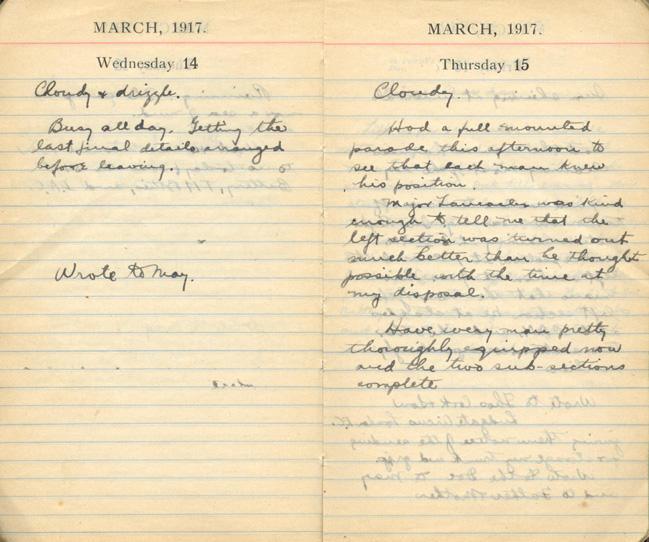 MARCH, 1917.
Wednesday 14
Cloudy & drizzle.
Busy all day. Getting the
last final details arranged
before leaving.
Wrote to May.
MARCH, 1917.
Thursday 15
Cloudy.
Had a full mounted
parade this afternoon to
see that each man knew
his position.
Major Lancaster was kind
enough to tell me that the
left section was turned out
much better than he thought
possible with the time at
my disposal.
Have every man pretty
thoroughly equipped now
and the two sub-sections
complete